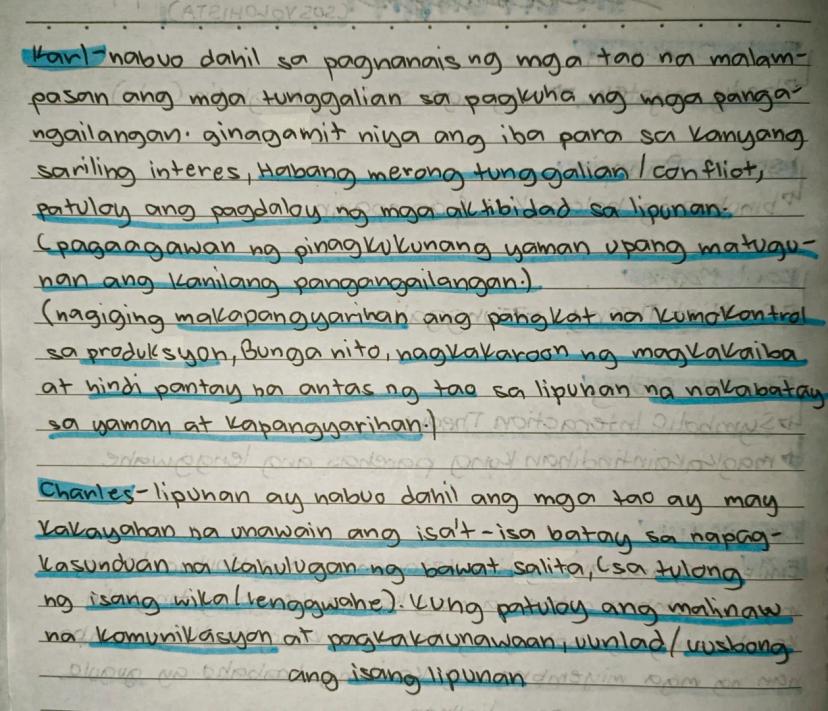 Karl-nabuo dahil sa pagnanais ng mga tao na malam-
pasan ang mga tunggalian sa pagkuha ng mga panga-
ngailangan. ginagamit niya ang iba para sa kanyang
sariling interes, Habang merong tunggalian/conflict,
patuloy ang pagdaloy ng mga aktibidad sa lipunan.
(pagaagawan ng pinagkukunang yaman upang matugu-
nan ang kanilang pangangailangan.)
(nagiging makapangyarihan ang pangkat na kumokontrol
sa produksyon, Bunga nito, nagkakaroon ng magkakaiba
at hindi pantay na antas ng tao sa lipunan na nakabatay
sa yaman at kapangyarihan.)
Charles-lipunan ay nabuo dahil ang mga tao ay may
kakayahan na unawain ang isa't-isa batay sa napag-
kasunduan na kahulugan ng bawat salita, (sa tulong
ng isang wika/lenggwahe). kung patuloy ang malinaw
na komunikasyon at pagkakaunawaan, uunlad/uusbong
ang isang lipunan